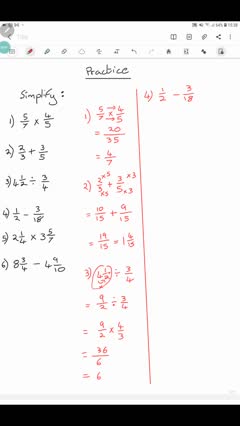 Practice
Simplify:
1) 5/7 × 4/5
2) 2/3 + 3/5
3) 4 1/2 ÷ 3/4
4) 1/2 - 3/18
5) 2 1/4 × 3 5/7
6) 8 3/4 - 4 9/10
1) 5/7 × 4/5
= 20/35
= 4/7
2) 2/3 ×5 ×5 + 3/5 ×3 ×3
= 10/15 + 9/15
= 19/15 = 1 4/15
3) 4 1/2 ÷ 3/4
= 9/2 ÷ 3/4
= 9/2 × 4/3
= 36/6
= 6
4) 1/2 - 3/18